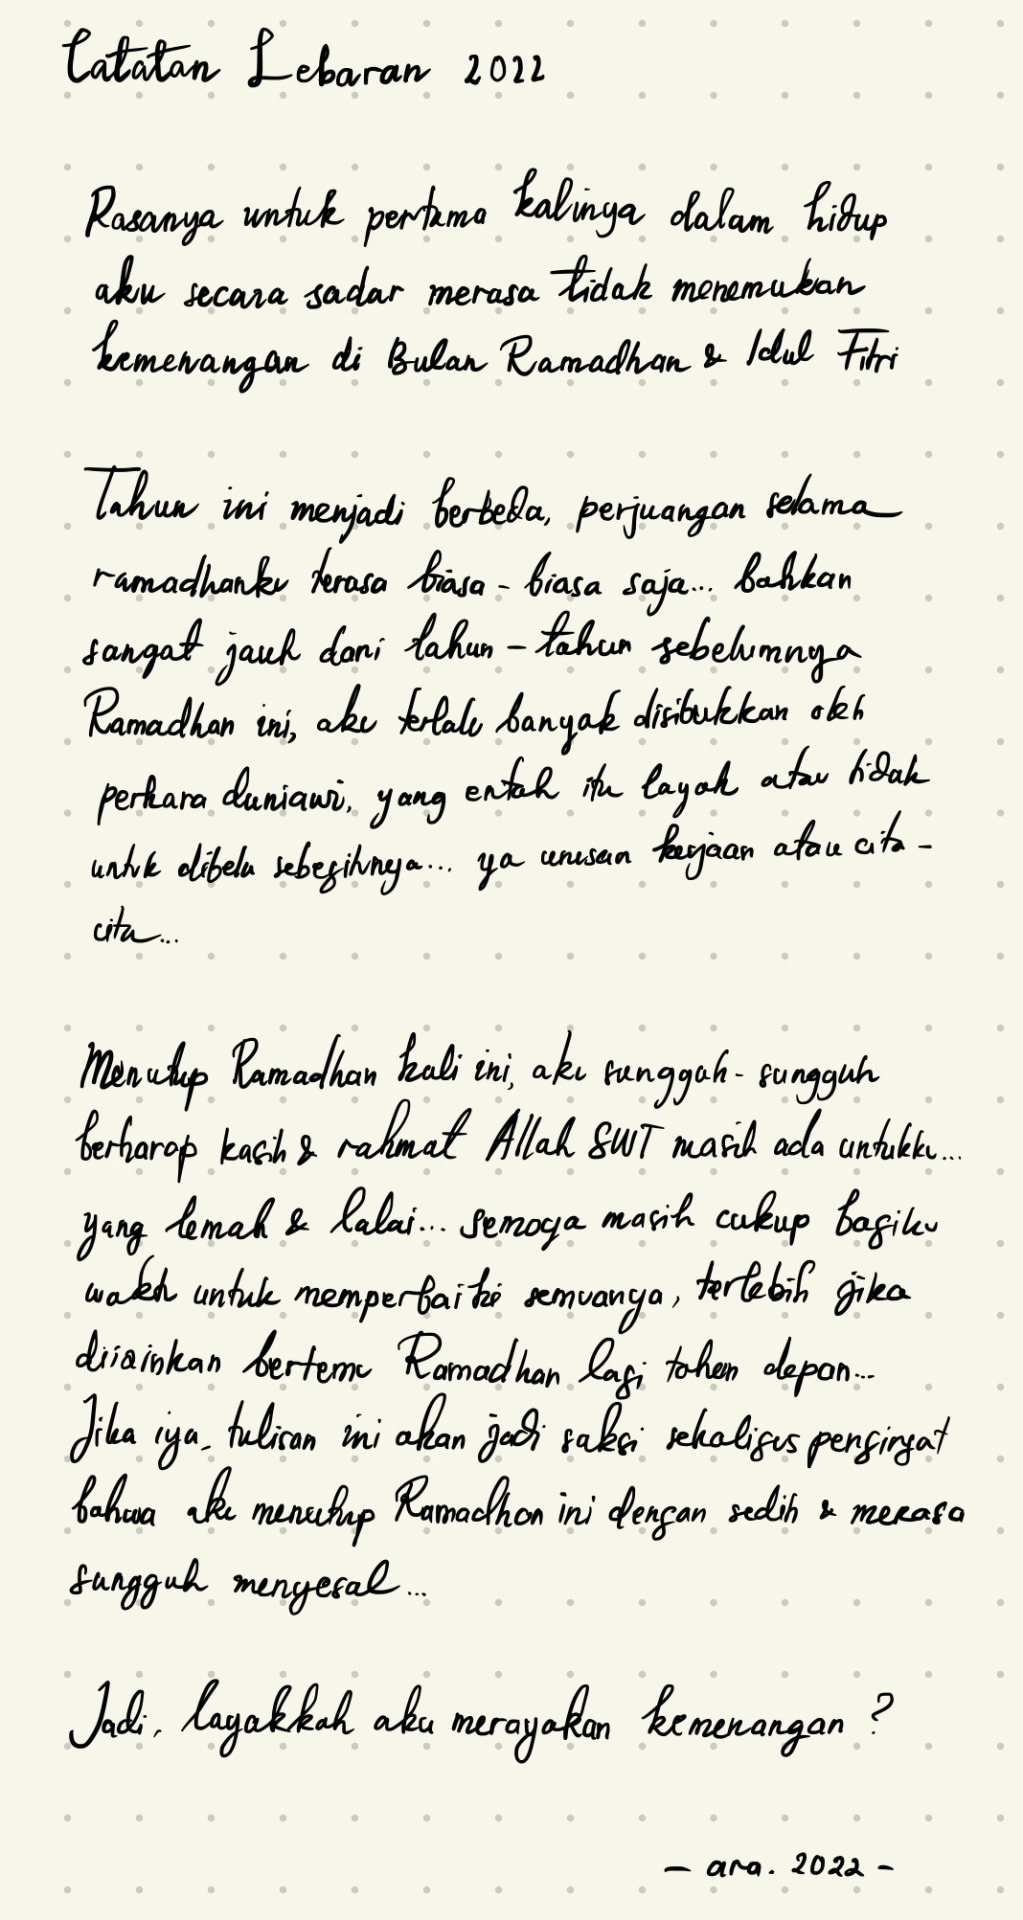 Catatan Lebaran 2022
Rasanya untuk pertama kalinya dalam hidup
aku secara sadar merasa tidak menemukan
kemenangan di Bulan Ramadhan & Idul Fitri
Tahun ini menjadi berbeda, perjuangan selama
ramadhanku terasa biasa - biasa saja... bahkan
sangat jauh dari tahun - tahun sebelumnya
Ramadhan ini, aku terlalu banyak disibukkan oleh
perkara duniawi, yang entah itu layak atau tidak
untuk dibela sebegitunya... ya urusan kerjaan atau cita -
cita...
Menutup Ramadhan kali ini, aku sungguh - sungguh
berharap kasih & rahmat Allah SWT masih ada untukku...
yang lemah & lalai... semoga masih cukup bagiku
waktu untuk memperbaiki semuanya, terlebih jika
diizinkan bertemu Ramadhan lagi tahun depan...
Jika iya, tulisan ini akan jadi saksi sekaligus pengingat
bahwa aku menutup Ramadhan ini dengan sedih & merasa
sungguh menyesal...
Jadi, layakkah aku merayakan kemenangan ?
- ara. 2022 -